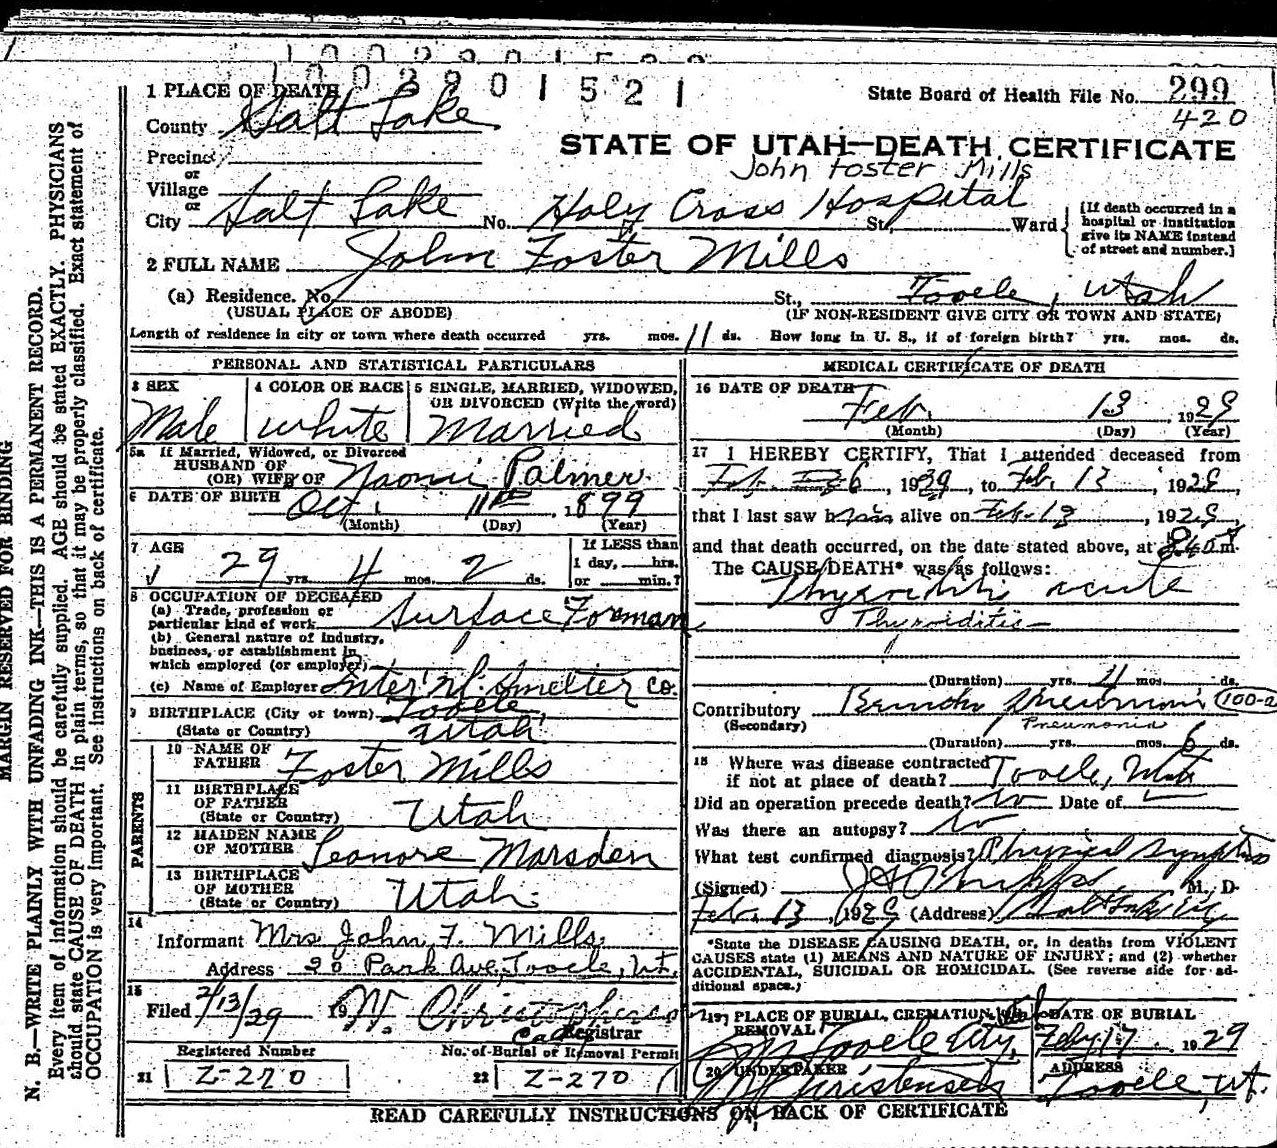 1002901521
1 PLACE OF DEATH
State Board of Health File No. 299
420
County Salt Lake
STATE OF UTAH—DEATH CERTIFICATE
Precinct
or
John Foster Mills
Village
or
City Salt Lake No. Holy Cross Hospital St., Ward
[If death occurred in a
hospital or institution
give its NAME instead
of street and number.]
2 FULL NAME John Foster Mills
(a) Residence. No. St., Tooele, Utah
(USUAL PLACE OF ABODE) (IF NON-RESIDENT GIVE CITY OR TOWN AND STATE)
Length of residence in city or town where death occurred yrs. mos. 11 ds. How long in U. S., if of foreign birth? yrs. mos. ds.
PERSONAL AND STATISTICAL PARTICULARS
3 SEX
Male
4 COLOR OR RACE
White
5 SINGLE, MARRIED, WIDOWED,
OR DIVORCED (Write the word)
Married
5a If Married, Widowed, or Divorced
HUSBAND OF
(OR) WIFE OF Naomi Palmer
6 DATE OF BIRTH Oct. 11th, 1899
(Month) (Day) (Year)
7 AGE
29 yrs. 4 mos. 2 ds.
If LESS than
1 day, hrs.
or min.?
8 OCCUPATION OF DECEASED
(a) Trade, profession or
particular kind of work Surface Forman
(b) General nature of industry,
business, or establishment in
which employed (or employer)
(c) Name of Employer Inter'n'l. Smelter Co.
9 BIRTHPLACE (City or town) Tooele,
(State or Country) Utah
PARENTS
10 NAME OF
FATHER Foster Mills
11 BIRTHPLACE
OF FATHER
(State or Country) Utah
12 MAIDEN NAME
OF MOTHER Leonore Marsden
13 BIRTHPLACE
OF MOTHER
(State or Country) Utah.
14
Informant Mrs. John F. Mills.
Address 20 Park Ave, Tooele, Ut.
15
Filed 2/13/29 19 W. Christopherson
Registrar
Registered Number
21 Z-270
No. of Burial or Removal Permit
22 Z-270
MEDICAL CERTIFICATE OF DEATH
16 DATE OF DEATH
Feb. 13, 1929
(Month) (Day) (Year)
17 I HEREBY CERTIFY, That I attended deceased from
Feb. 6, 1929, to Feb. 13, 1929,
that I last saw him alive on Feb. 13, 1929,
and that death occurred, on the date stated above, at 840 m.
The CAUSE DEATH* was as follows:
Thyroiditis acute
Thyroiditis
(Duration) yrs. 4 mos. ds.
Contributory Broncho Pneumonia 100-a
(Secondary) Pneumonia
(Duration) yrs. mos. 6 ds.
18 Where was disease contracted
if not at place of death? Tooele, Utah
Did an operation precede death? no Date of
Was there an autopsy? no
What test confirmed diagnosis? Physical Symptoms
(Signed) M. D.
Feb. 13, 1929 (Address) Salt Lake City
*State the DISEASE CAUSING DEATH, or, in deaths from VIOLENT
CAUSES state (1) MEANS AND NATURE OF INJURY; and (2) whether
ACCIDENTAL, SUICIDAL OR HOMICIDAL. (See reverse side for ad-
ditional space.)
19 PLACE OF BURIAL, CREMATION,
REMOVAL
Tooele City,
DATE OF BURIAL
Feby 17. 1929
20 UNDERTAKER
Christensen
ADDRESS
Tooele, Ut.
READ CAREFULLY INSTRUCTIONS ON BACK OF CERTIFICATE
MARGIN RESERVED FOR BINDING
N. B.—WRITE PLAINLY WITH UNFADING INK—THIS IS A PERMANENT RECORD.
Every item of information should be carefully supplied. AGE should be stated EXACTLY. PHYSICIANS
should state CAUSE OF DEATH in plain terms, so that it may be properly classified. Exact statement of
OCCUPATION is very important. See instructions on back of certificate.